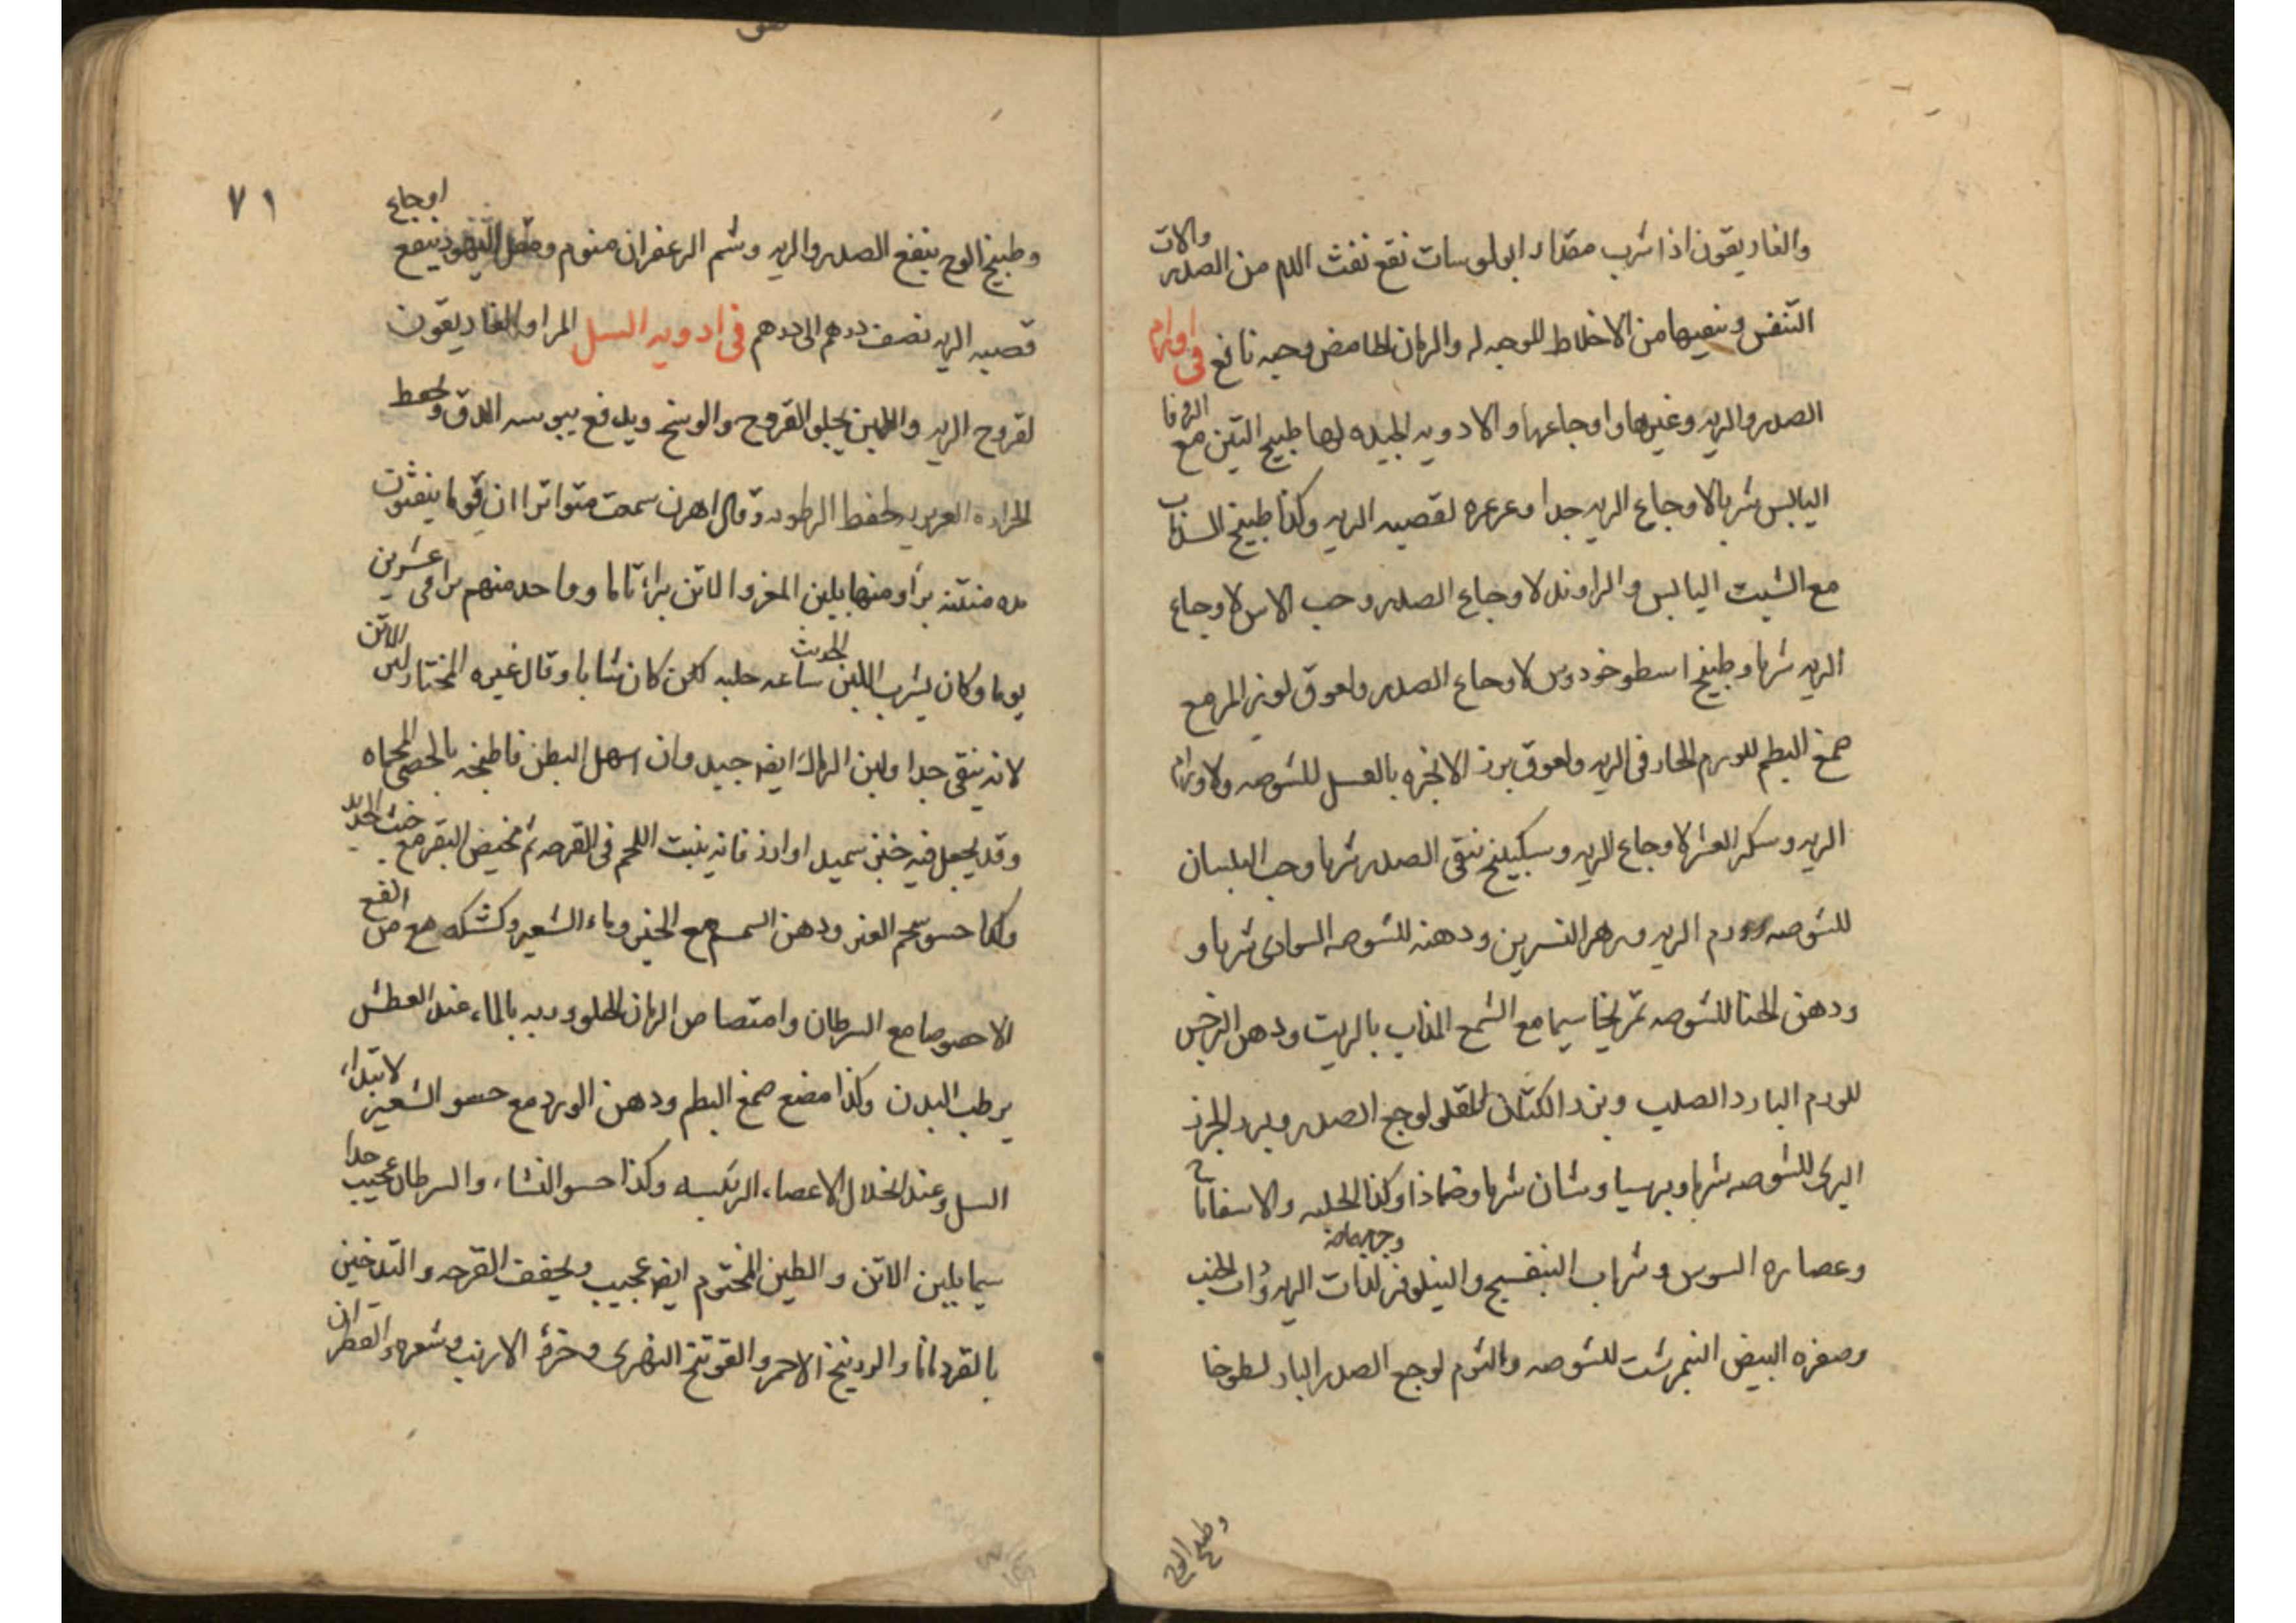 والغاريقون اذا شرب مقدار ابولوسات نفع نفث الدم من الصدر والات
التنفس وينقيها من الاخلاط للوجه له والرمان الحامض وحبه نافع في اورام
الصدر والريه وغيرها واوجاعها والادويه الجيده لها طبيخ التين مع الزوفا
اليابس شربا لاوجاع الريه جدا وغرغره لقصبه الريه وكذا طبيخ السذاب
مع الشبت اليابس والراوند لاوجاع الصدر وحب الاس لاوجاع
الريه شربا وطبيخ اسطوخودوس لاوجاع الصدر ولعوق لوز المر مع
صمغ البطم للورم الحار في الريه ولعوق بزر الانجره بالعسل للشوصه ولاورام
الريه وسكر العشر لاوجاع الريه وسكبينج ينقي الصدر شربا وحب البلسان
للشوصه وورم الريه وزهر النسرين ودهنه للشوصه السوداوي شربا و
ودهن الحنا للشوصه تمريخا سيما مع الشمع المذاب بالزيت ودهن النرجس
للورم البارد الصلب وبزر الكتان المقلو لوجع الصدر وبرد الجزر
البري للشوصه شربا وبرسياوشان شربا وضمادا وكذا الحلبه والاسفاناخ
وعصاره السوس وشراب البنفسج والنيلوفر لذات الريه وذات الجنب
وصفره البيض النيمرشت للشوصه والثوم لوجع الصدر البارد لطوخا
وطبيخ الوج
٧١
وطبيخ الوج ينفع الصدر والريه وشم الزعفران منوم ومقل اليهود ينفع اوجاع
قصبه الريه نصف درهم الى درهم في ادويه السل المر او الغاريقون
لقروح الريه واللبن يجلو القروح والوسخ ويدفع يبوسه الدق ويحفظ
الحراره الغريزيه لحفظ الرطوبه وقال اهرن سمعت متواترا ان قوما ينفثون
مده منتنه برأوا منها بلبن المعز والاتن براء تاما وواحد منهم برا في عشرين
يوما وكان يشرب اللبن الحديث ساعه حلبه لكن كان شابا وقال غيره المختار لبن الاتن
لانه ينقي جدا ولبن الرماك ايضا جيد وان اسهل البطن فاطبخه بالحصى المحماه
وقد يجعل فيه خبز سميد او ارز فانه ينبت اللحم في القرحه ثم مخيض البقر مع خبث الحديد
وكذا حسو شحم العنز ودهن السمسم مع الخبز وماء الشعير وكشكه مع مرض القرع
الا خصوصا مع السرطان وامتصاص الرمان الحلو وربه بالماء عند العطش
يرطب البدن وكذا مضغ صمغ البطم ودهن الورد مع حسو الشعير لابتداء
السل وعند انحلال الاعضاء الرئيسه وكذا حسو النشاء والسرطان عجيب جدا
سيما بلبن الاتن والطين المختوم ايضا عجيب ويجفف القرحه والتدخين
بالقردمانا والزرنيخ الاحمر والفوتنج النهري وخرؤ الارنب وشعره والقطران